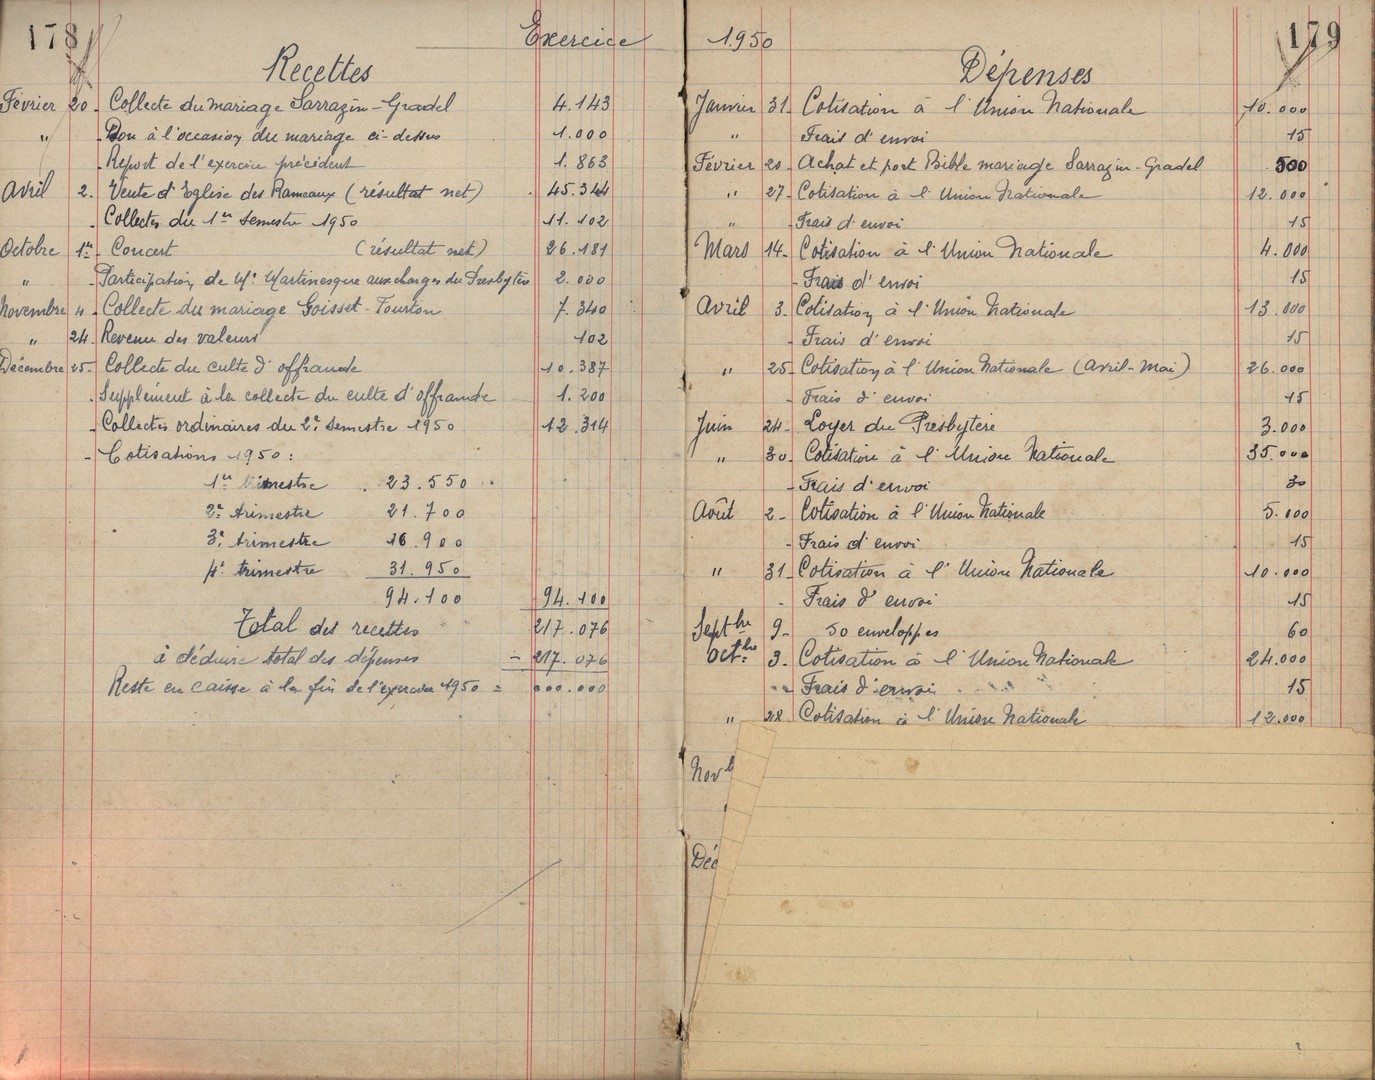 178
Exercice
Recettes
Février 20 - Collecte du mariage Sarrazin-Gradel 4.143
" - Don à l'occasion du mariage ci-dessus 1.000
- Report de l'exercice précédent 1.863
Avril 2. Vente d'Eglise des Rameaux (résultat net) 45.344
- Collectes du 1er Semestre 1950 11.102
Octobre 1er - Concert (résultat net) 26.181
" - Participation de Mr Martinesque aux charges du Presbytère 2.000
Novembre 4 - Collecte du mariage Goisset-Tourton 7.340
" 24 - Revenu des valeurs 102
Décembre 25 - Collecte du culte d'offrande 10.387
- Supplément à la collecte du culte d'offrande 1.200
- Collectes ordinaires du 2e Semestre 1950 12.314
- Cotisations 1950 :
1er trimestre 23.550
2e trimestre 21.700
3e trimestre 16.900
4e trimestre 31.950
94.100 94.100
Total des recettes 217.076
à déduire total des dépenses - 217.076
Reste en caisse à la fin de l'exercice 1950 = 000.000
1950
179
Dépenses
Janvier 31 - Cotisation à l'Union Nationale 10.000
" Frais d'envoi 15
Février 20 - Achat et port Bible mariage Sarrazin-Gradel 500
" 27 - Cotisation à l'Union Nationale 12.000
" Frais d'envoi 15
Mars 14 - Cotisation à l'Union Nationale 4.000
- Frais d'envoi 15
Avril 3. Cotisation à l'Union Nationale 13.000
- Frais d'envoi 15
" 25 - Cotisation à l'Union Nationale (Avril-Mai) 26.000
- Frais d'envoi 15
Juin 24 - Loyer du Presbytère 3.000
" 30 - Cotisation à l'Union Nationale 35.000
- Frais d'envoi 30
Août 2 - Cotisation à l'Union Nationale 5.000
- Frais d'envoi 15
" 31 - Cotisation à l'Union Nationale 10.000
- Frais d'envoi 15
Septbre 9 - 50 enveloppes 60
Octbre 3 - Cotisation à l'Union Nationale 24.000
" - Frais d'envoi 15
" 28 Cotisation à l'Union Nationale 12.000
Novb
Déc